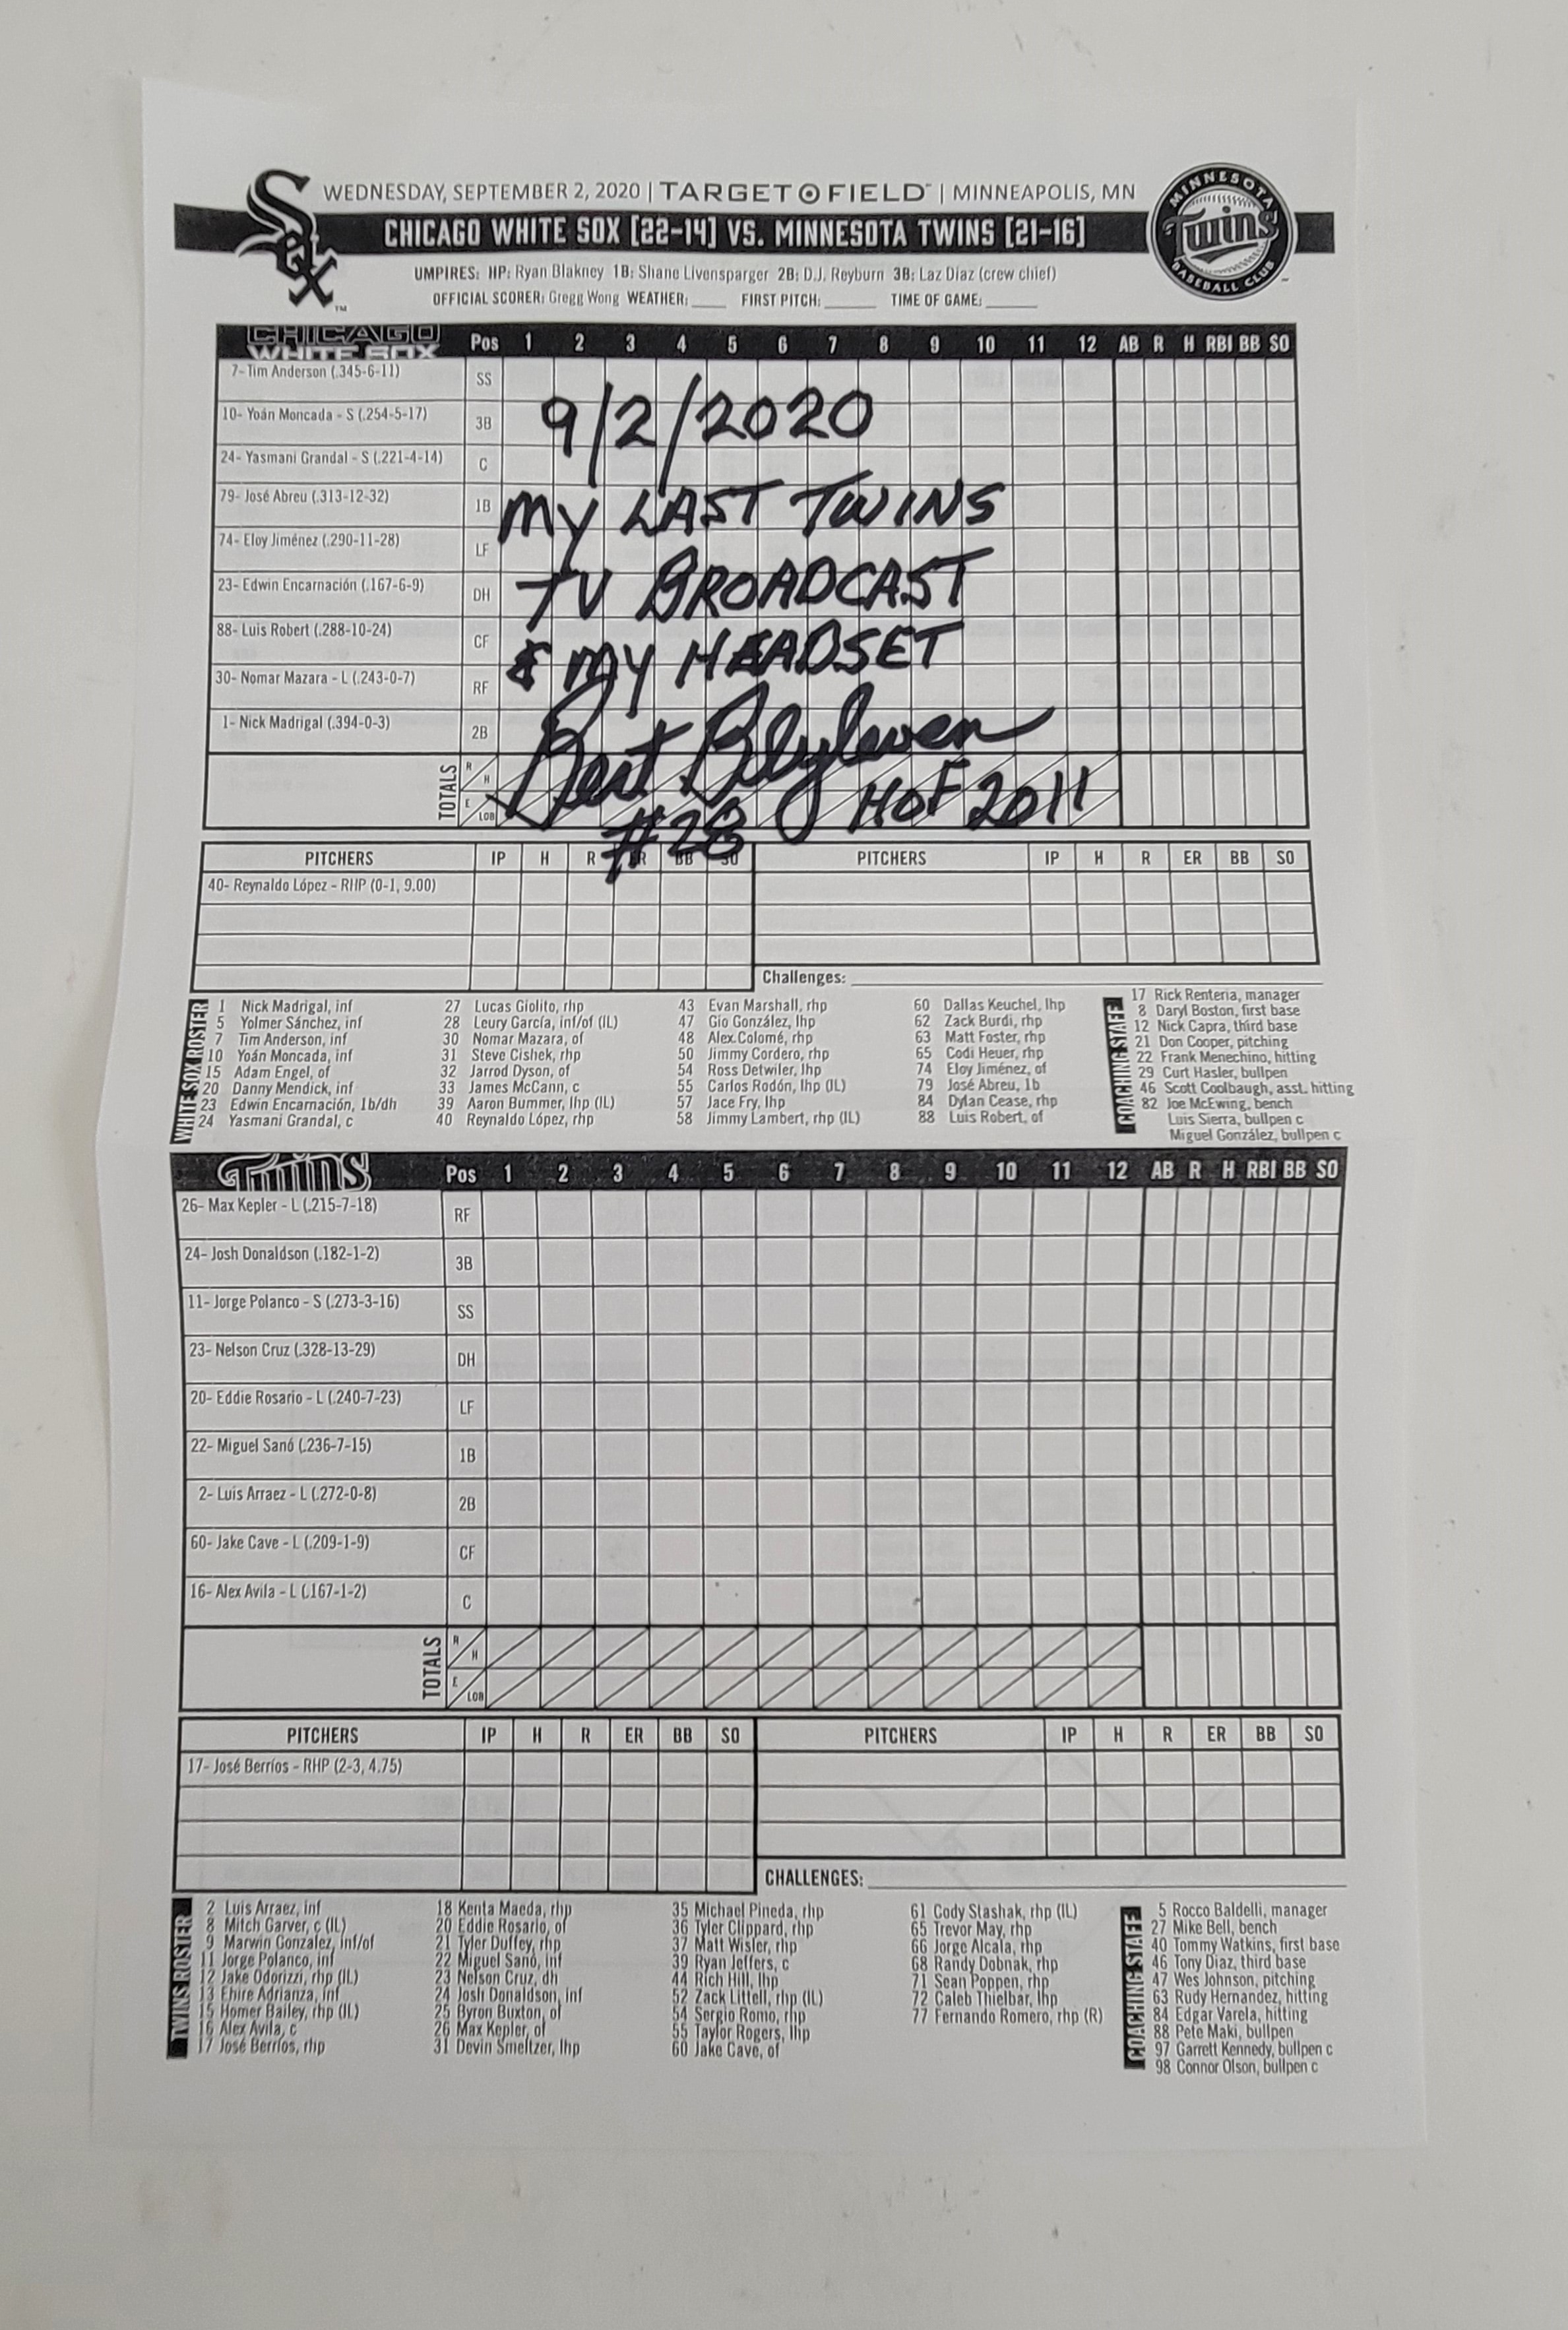 WEDNESDAY, SEPTEMBER 2, 2020 | TARGET FIELD | MINNEAPOLIS, MN
CHICAGO WHITE SOX [22-14] VS. MINNESOTA TWINS [21-16]
Sox
MINNESOTA Twins BASEBALL CLUB
UMPIRES: HP: Ryan Blakney 1B: Shane Livensparger 2B: D.J. Reyburn 3B: Laz Diaz (crew chief)
OFFICIAL SCORER: Gregg Wong WEATHER: ____ FIRST PITCH: ____ TIME OF GAME: ____
CHICAGO WHITE SOX Pos 1 2 3 4 5 6 7 8 9 10 11 12 AB R H RBI BB SO
7- Tim Anderson (.345-6-11) SS
10- Yoán Moncada - S (.254-5-17) 3B
24- Yasmani Grandal - S (.221-4-14) C
79- José Abreu (.313-12-32) 1B
74- Eloy Jiménez (.290-11-28) LF
23- Edwin Encarnación (.167-6-9) DH
88- Luis Robert (.288-10-24) CF
30- Nomar Mazara - L (.243-0-7) RF
1- Nick Madrigal (.394-0-3) 2B
TOTALS R H E LOB
9/2/2020
MY LAST TWINS
TV BROADCAST
& MY HEADSET
Bert Blyleven
#28 HOF 2011
PITCHERS IP H R ER BB SO PITCHERS IP H R ER BB SO
40- Reynaldo López - RHP (0-1, 9.00)
Challenges:
WHITE SOX ROSTER
1 Nick Madrigal, inf
5 Yolmer Sánchez, inf
7 Tim Anderson, inf
10 Yoán Moncada, inf
15 Adam Engel, of
20 Danny Mendick, inf
23 Edwin Encarnación, 1b/dh
24 Yasmani Grandal, c
27 Lucas Giolito, rhp
28 Leury García, inf/of (IL)
30 Nomar Mazara, of
31 Steve Cishek, rhp
32 Jarrod Dyson, of
33 James McCann, c
39 Aaron Bummer, lhp (IL)
40 Reynaldo López, rhp
43 Evan Marshall, rhp
47 Gio González, lhp
48 Alex Colomé, rhp
50 Jimmy Cordero, rhp
54 Ross Detwiler, lhp
55 Carlos Rodón, lhp (IL)
57 Jace Fry, lhp
58 Jimmy Lambert, rhp (IL)
60 Dallas Keuchel, lhp
62 Zack Burdi, rhp
63 Matt Foster, rhp
65 Codi Heuer, rhp
74 Eloy Jiménez, of
79 José Abreu, 1b
84 Dylan Cease, rhp
88 Luis Robert, of
COACHING STAFF
17 Rick Renteria, manager
8 Daryl Boston, first base
12 Nick Capra, third base
21 Don Cooper, pitching
22 Frank Menechino, hitting
29 Curt Hasler, bullpen
46 Scott Coolbaugh, asst. hitting
82 Joe McEwing, bench
Luis Sierra, bullpen c
Miguel González, bullpen c
Twins Pos 1 2 3 4 5 6 7 8 9 10 11 12 AB R H RBI BB SO
26- Max Kepler - L (.215-7-18) RF
24- Josh Donaldson (.182-1-2) 3B
11- Jorge Polanco - S (.273-3-16) SS
23- Nelson Cruz (.328-13-29) DH
20- Eddie Rosario - L (.240-7-23) LF
22- Miguel Sanó (.236-7-15) 1B
2- Luis Arraez - L (.272-0-8) 2B
60- Jake Cave - L (.209-1-9) CF
16- Alex Avila - L (.167-1-2) C
TOTALS R H E LOB
PITCHERS IP H R ER BB SO PITCHERS IP H R ER BB SO
17- José Berríos - RHP (2-3, 4.75)
CHALLENGES:
TWINS ROSTER
2 Luis Arraez, inf
8 Mitch Garver, c (IL)
9 Marwin Gonzalez, inf/of
11 Jorge Polanco, inf
12 Jake Odorizzi, rhp (IL)
13 Ehire Adrianza, inf
15 Homer Bailey, rhp (IL)
16 Alex Avila, c
17 José Berríos, rhp
18 Kenta Maeda, rhp
20 Eddie Rosario, of
21 Tyler Duffey, rhp
22 Miguel Sanó, inf
23 Nelson Cruz, dh
24 Josh Donaldson, inf
25 Byron Buxton, of
26 Max Kepler, of
31 Devin Smeltzer, lhp
35 Michael Pineda, rhp
36 Tyler Clippard, rhp
37 Matt Wisler, rhp
39 Ryan Jeffers, c
44 Rich Hill, lhp
52 Zack Littell, rhp (IL)
54 Sergio Romo, rhp
55 Taylor Rogers, lhp
60 Jake Cave, of
61 Cody Stashak, rhp (IL)
65 Trevor May, rhp
66 Jorge Alcala, rhp
68 Randy Dobnak, rhp
71 Sean Poppen, rhp
72 Caleb Thielbar, lhp
77 Fernando Romero, rhp (R)
COACHING STAFF
5 Rocco Baldelli, manager
27 Mike Bell, bench
40 Tommy Watkins, first base
46 Tony Diaz, third base
47 Wes Johnson, pitching
63 Rudy Hernandez, hitting
84 Edgar Varela, hitting
88 Pete Maki, bullpen
97 Garrett Kennedy, bullpen c
98 Connor Olson, bullpen c